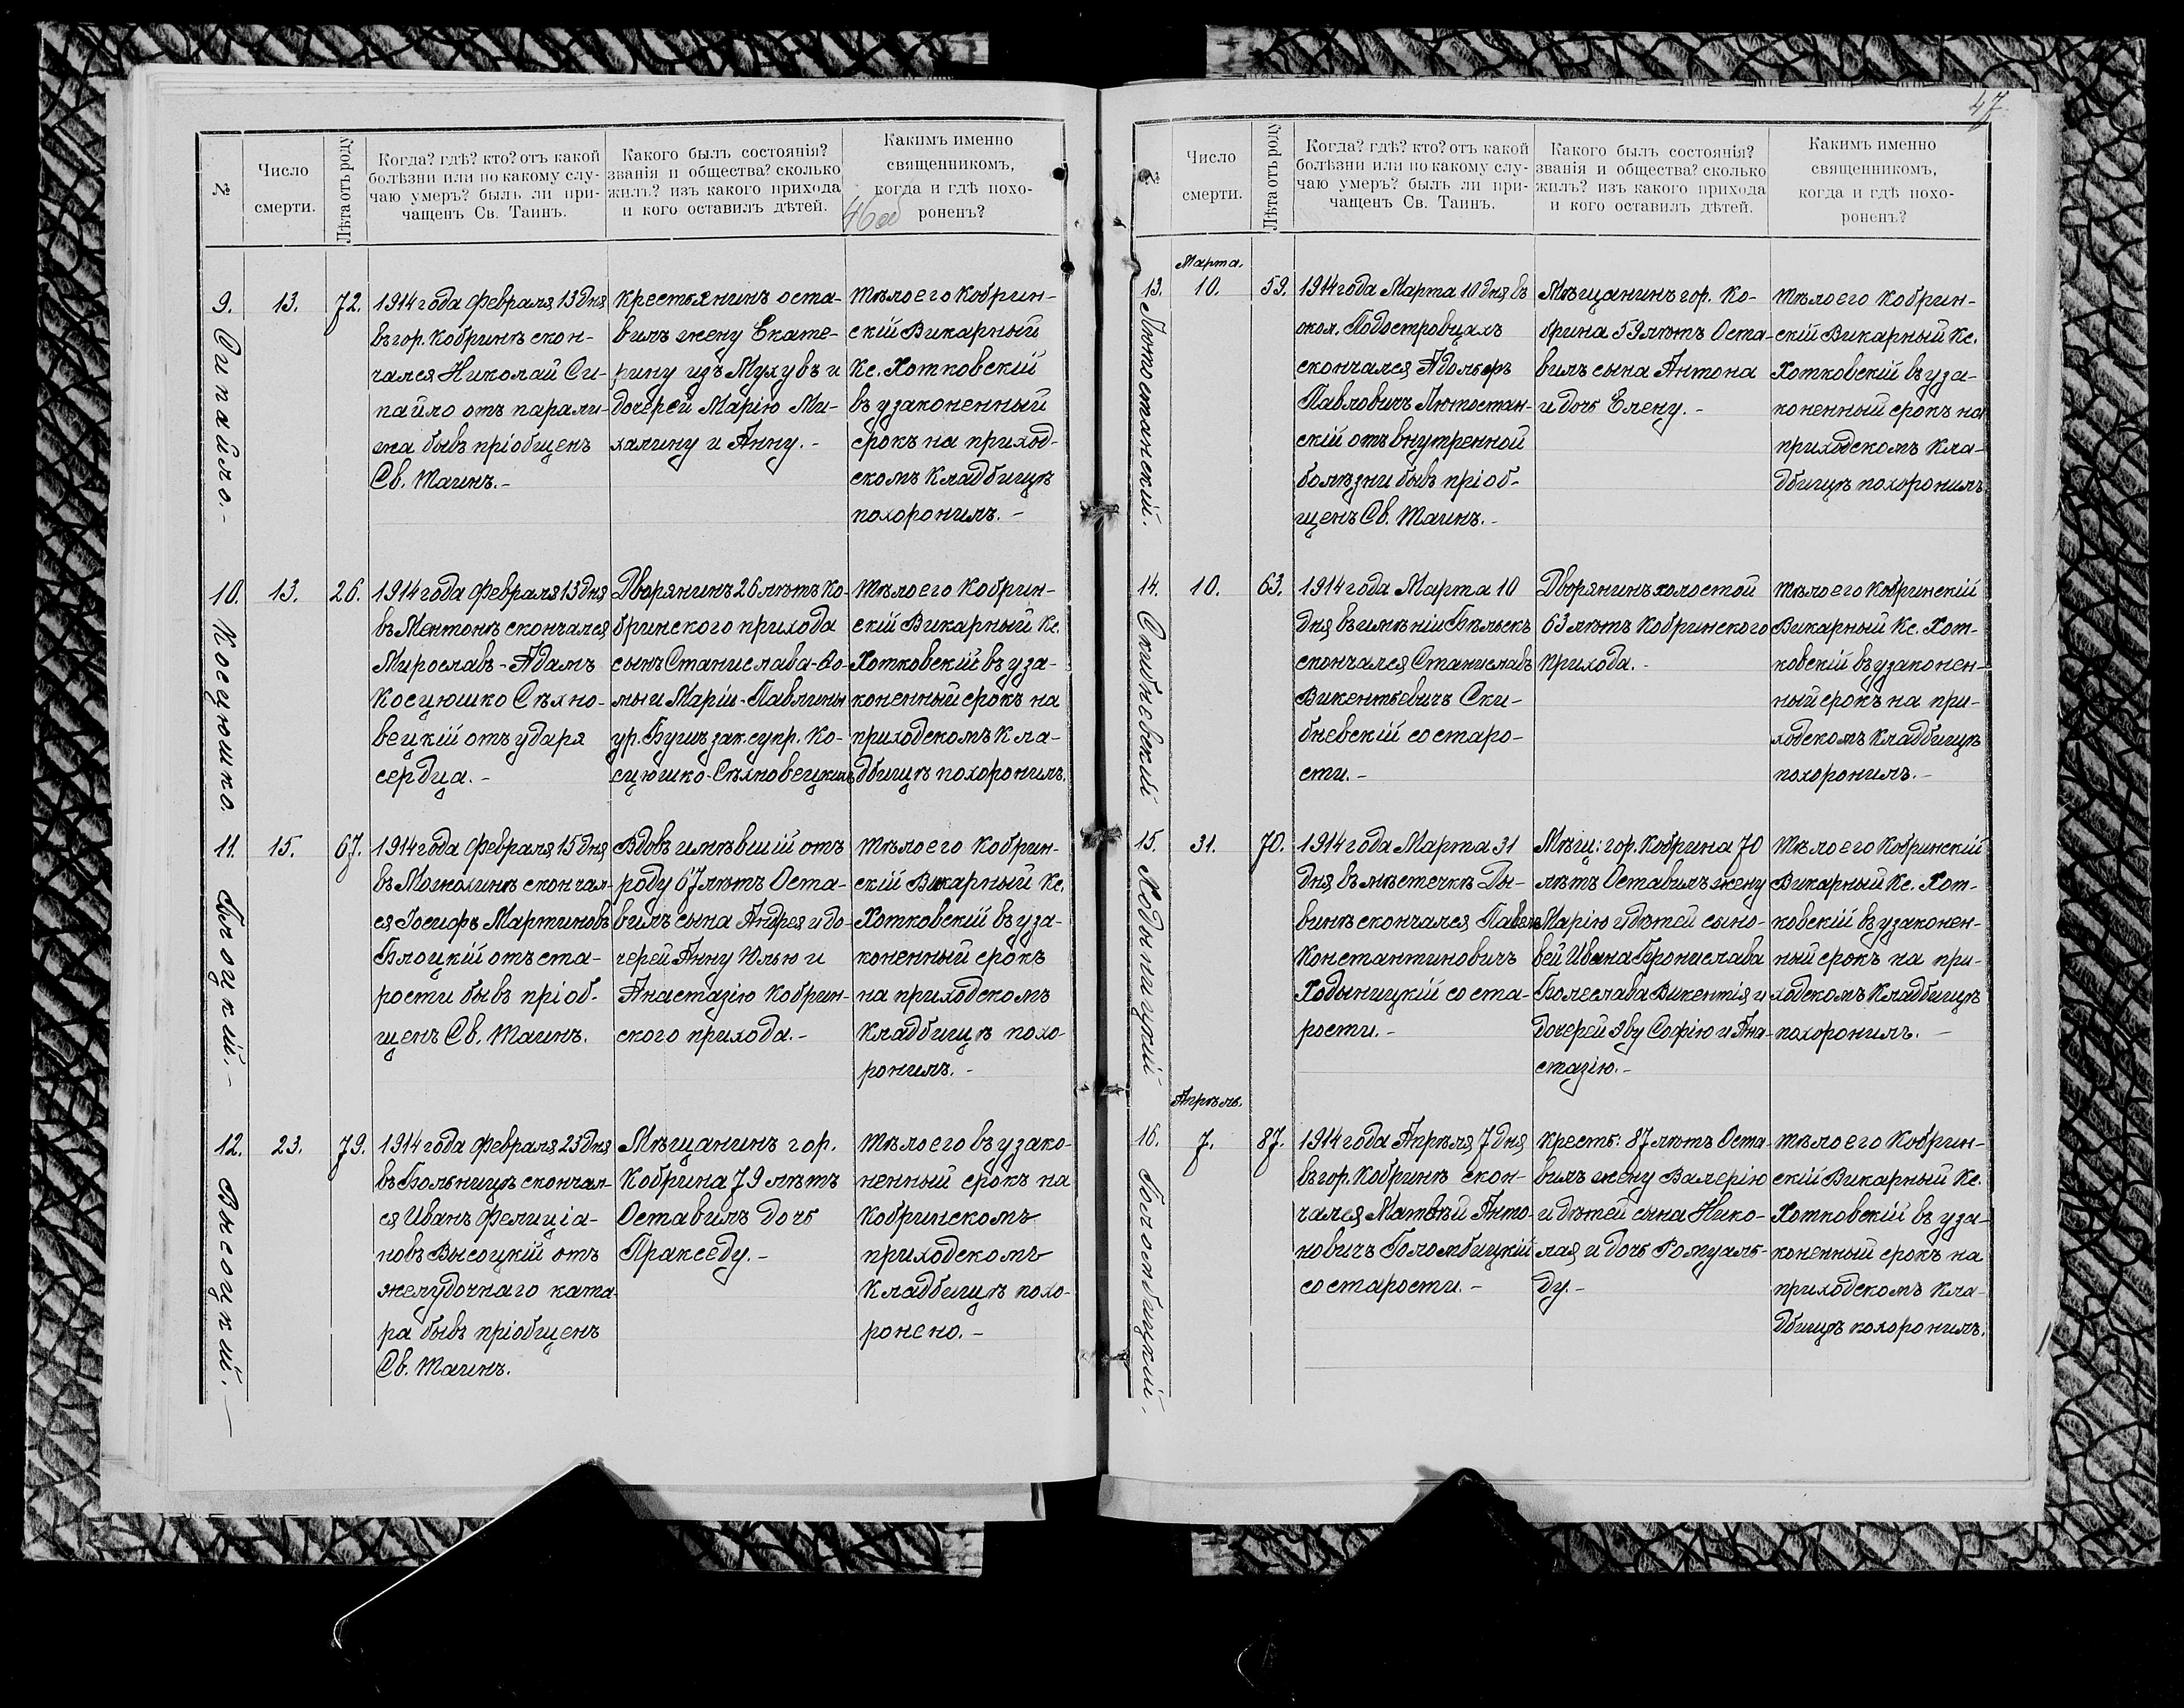 47
46 об
№
Число
смерти.
Лѣта отъ роду
Когда? гдѣ? кто? отъ какой
болѣзни или по какому слу-
чаю умеръ? былъ ли при-
чащенъ Св. Таинъ.
Какого былъ состоянія?
званія и общества? сколько
жилъ? изъ какого прихода
и кого оставилъ дѣтей.
Какимъ именно
священникомъ,
когда и гдѣ похо-
роненъ?
9.
Сипайло.-
13.
72.
1914 года февраля 13 дня
въ гор. Кобринѣ скон-
чался Николай Си-
пайло отъ парали-
жа бывъ пріобщенъ
Св. Таинъ.-
Крестьянинъ оста-
вилъ жену Екате-
рину изъ Мухувъ и
дочерей Марію Ми-
халину и Анну.-
Тѣло его Кобрин-
скій Викарный
Кс. Хотковскій
въ узаконенный
срокъ на приход-
скомъ Кладбищѣ
похоронилъ.-
10.
Косцюшко.
13.
26.
1914 года февраля 13 дня
въ Ментонѣ скончался
Мирославъ-Адамъ
Косцюшко Сѣхно-
вецкій отъ ударя
сердца.-
Дворянинъ 26 лѣтъ Ко-
бринского прихода
сынъ Станислава-Ѳо-
мы и Маріи-Павлины
ур. Бушъ зак. супр. Ко-
сцюшко-Сѣхновецкихъ
Тѣло его Кобрин-
скій Викарный Кс.
Хотковскій въ уза-
коненный срокъ на
приходскомъ Кла-
дбищѣ похоронилъ.
11.
Блоцкій.-
15.
67.
1914 года февраля 15 дня
въ скончал-
ся Іосифъ Мартиновъ
Блоцкій отъ ста-
рости бывъ пріоб-
щенъ Св. Таинъ.
Вдовъ имѣвшій отъ
роду 67 лѣтъ Оста-
вилъ сына Андрея и до-
черей Анну Юлью и
Анастазію Кобрин-
ского прихода.-
Тѣло его Кобрин-
скій Викарный Кс.
Хотковскій въ уза-
коненный срокъ
на приходскомъ
Кладбищѣ похо-
ронилъ.-
12.
Высоцкій.-
23.
79.
1914 года февраля 23 дня
въ Больницѣ скончал-
ся Иванъ Фелиціа-
новъ Высоцкій отъ
желудочнаго ката-
ра бывъ пріобщенъ
Св. Таинъ.
Мѣщанинъ гор.
Кобрина 79 лѣтъ
Оставилъ дочь
Праксeду.-
Тѣло его въ узако-
ненный срокъ на
Кобринскомъ
приходскомъ
Кладбищѣ похо-
ронено.-
№
Число
смерти.
Лѣта отъ роду
Когда? гдѣ? кто? отъ какой
болѣзни или по какому слу-
чаю умеръ? былъ ли при-
чащенъ Св. Таинъ.
Какого былъ состоянія?
званія и общества? сколько
жилъ? изъ какого прихода
и кого оставилъ дѣтей.
Какимъ именно
священникомъ,
когда и гдѣ похо-
роненъ?
Марта.
13.
Лютостанскій.
10.
59.
1914 года Марта 10 дня въ
окол. Подостровцахъ
скончался Адольфъ
Павловичъ Лютостан-
скій отъ внутренной
болѣзни бывъ пріоб-
щенъ Св. Таинъ.-
Мѣщанинъ гор. Ко-
брина 59 лѣтъ Оста-
вилъ сына Антона
и дочь Елену.-
Тѣло его Кобрин-
скій Викарный Кс.
Хотковскій въ уза-
коненный срокъ на
приходскомъ Кла-
дбищѣ похоронилъ
14.
Скибневскій
10.
63.
1914 года Марта 10
дня въ имѣніи Бѣльскъ
скончался Станиславъ
Викентьевичъ Ски-
бневскій со старо-
сти.-
Дворянинъ холостой
63 лѣтъ Кобринского
прихода.-
Тѣло его Кобринскій
Викарный Кс. Хот-
ковскій въ узаконен-
ный срокъ на при-
ходскомъ Кладбищѣ
похоронилъ.-
15.
Ходыницкій
31.
70.
1914 года Марта 31
дня въ мѣстечкѣ Ды-
винѣ скончался Павелъ
Константиновичъ
Ходыницкій со ста-
рости.-
Мѣщ: гор. Кобрина 70
лѣтъ Оставилъ жену
Марію и дѣтей сыно-
вей Ивана Бронислава
Болеслава Викентія и
дочерей Эву Софію и Ана-
стазію.-
Тѣло его Кобринскій
Викарный Кс. Хот-
ковскій въ узаконен-
ный срокъ на при-
ходскомъ Кладбищѣ
похоронилъ.-
Апрѣль.
16.
Голомбицкій.
7.
87.
1914 года Апрѣля 7 дня
въ гор. Кобринѣ скон-
чался Матвѣй Анто-
новичъ Голомбицкій
со старости.-
Кресть: 87 лѣтъ Оста-
вилъ жену Валерію
и дѣтей сына Нико-
лая и дочь Ромуаль-
ду.-
Тѣло его Кобрин-
скій Викарный Кс.
Хотковскій въ уза-
коненный срокъ на
приходскомъ Кла-
дбищѣ похоронилъ.